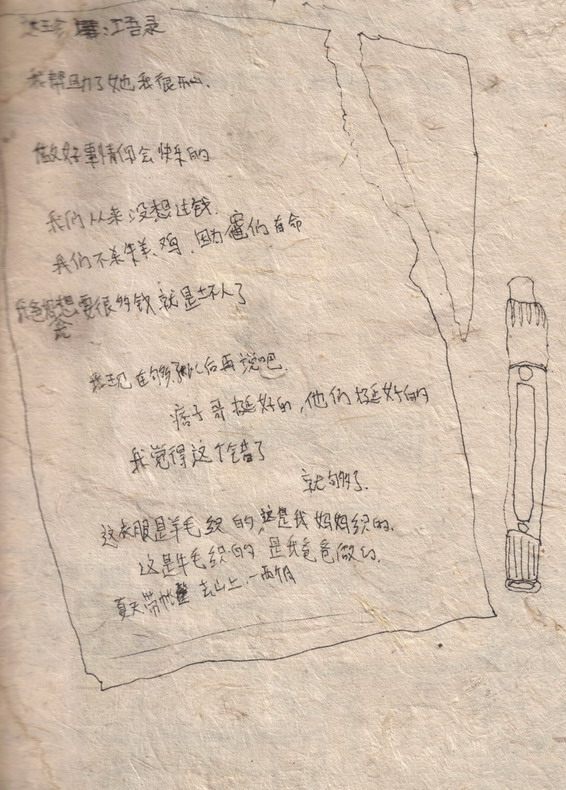 语录
我帮助了她我很开心.
做好事情你会快乐的
我们从来没想过钱.
我们不杀牛羊、鸡、因为它们有命
我爸爸想要很多钱就是坏人了
我现在够了以后再说吧.
痞子哥挺好的,他们挺好的
我觉得这个错了
就够了.
这衣服是羊毛织的,这是我妈妈织的.
这是牛毛织的是我爸爸做的.
夏天带帐 去山上,一两个月